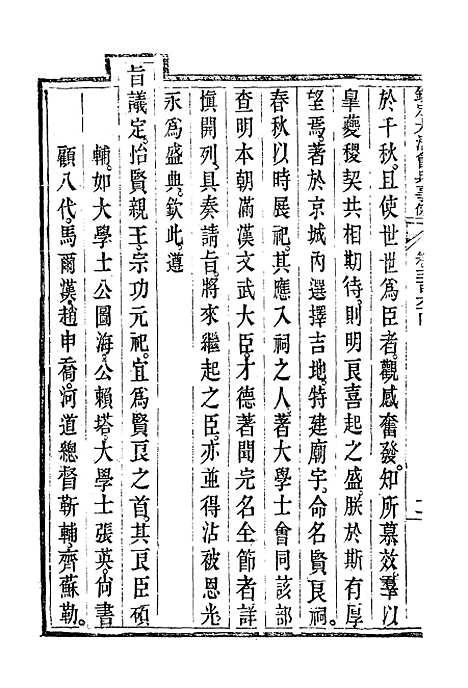 欽定大清會典事例
於千秋。且使世世爲臣者。觀感奮發。知所慕效。羣以
臯夔稷契共相期待。則明良喜起之盛。朕於斯有厚
望焉。著於京城內選擇吉地。特建廟宇。命名賢良祠。
春秋以時展祀。其應入祠之人。著大學士會同該部
查明本朝滿漢文武大臣。才德著聞完名全節者。詳
愼開列。具奏請旨。將來繼起之臣。亦並得沾被恩光。
永爲盛典。欽此。遵
旨議定。怡賢親王。宗功元祀。宜爲賢良之首。其良臣碩
輔。如大學士公圖海。公賴塔。大學士張英。尙書
顧八代。馬爾漢。趙申喬。河道總督靳輔。齊蘇勒。